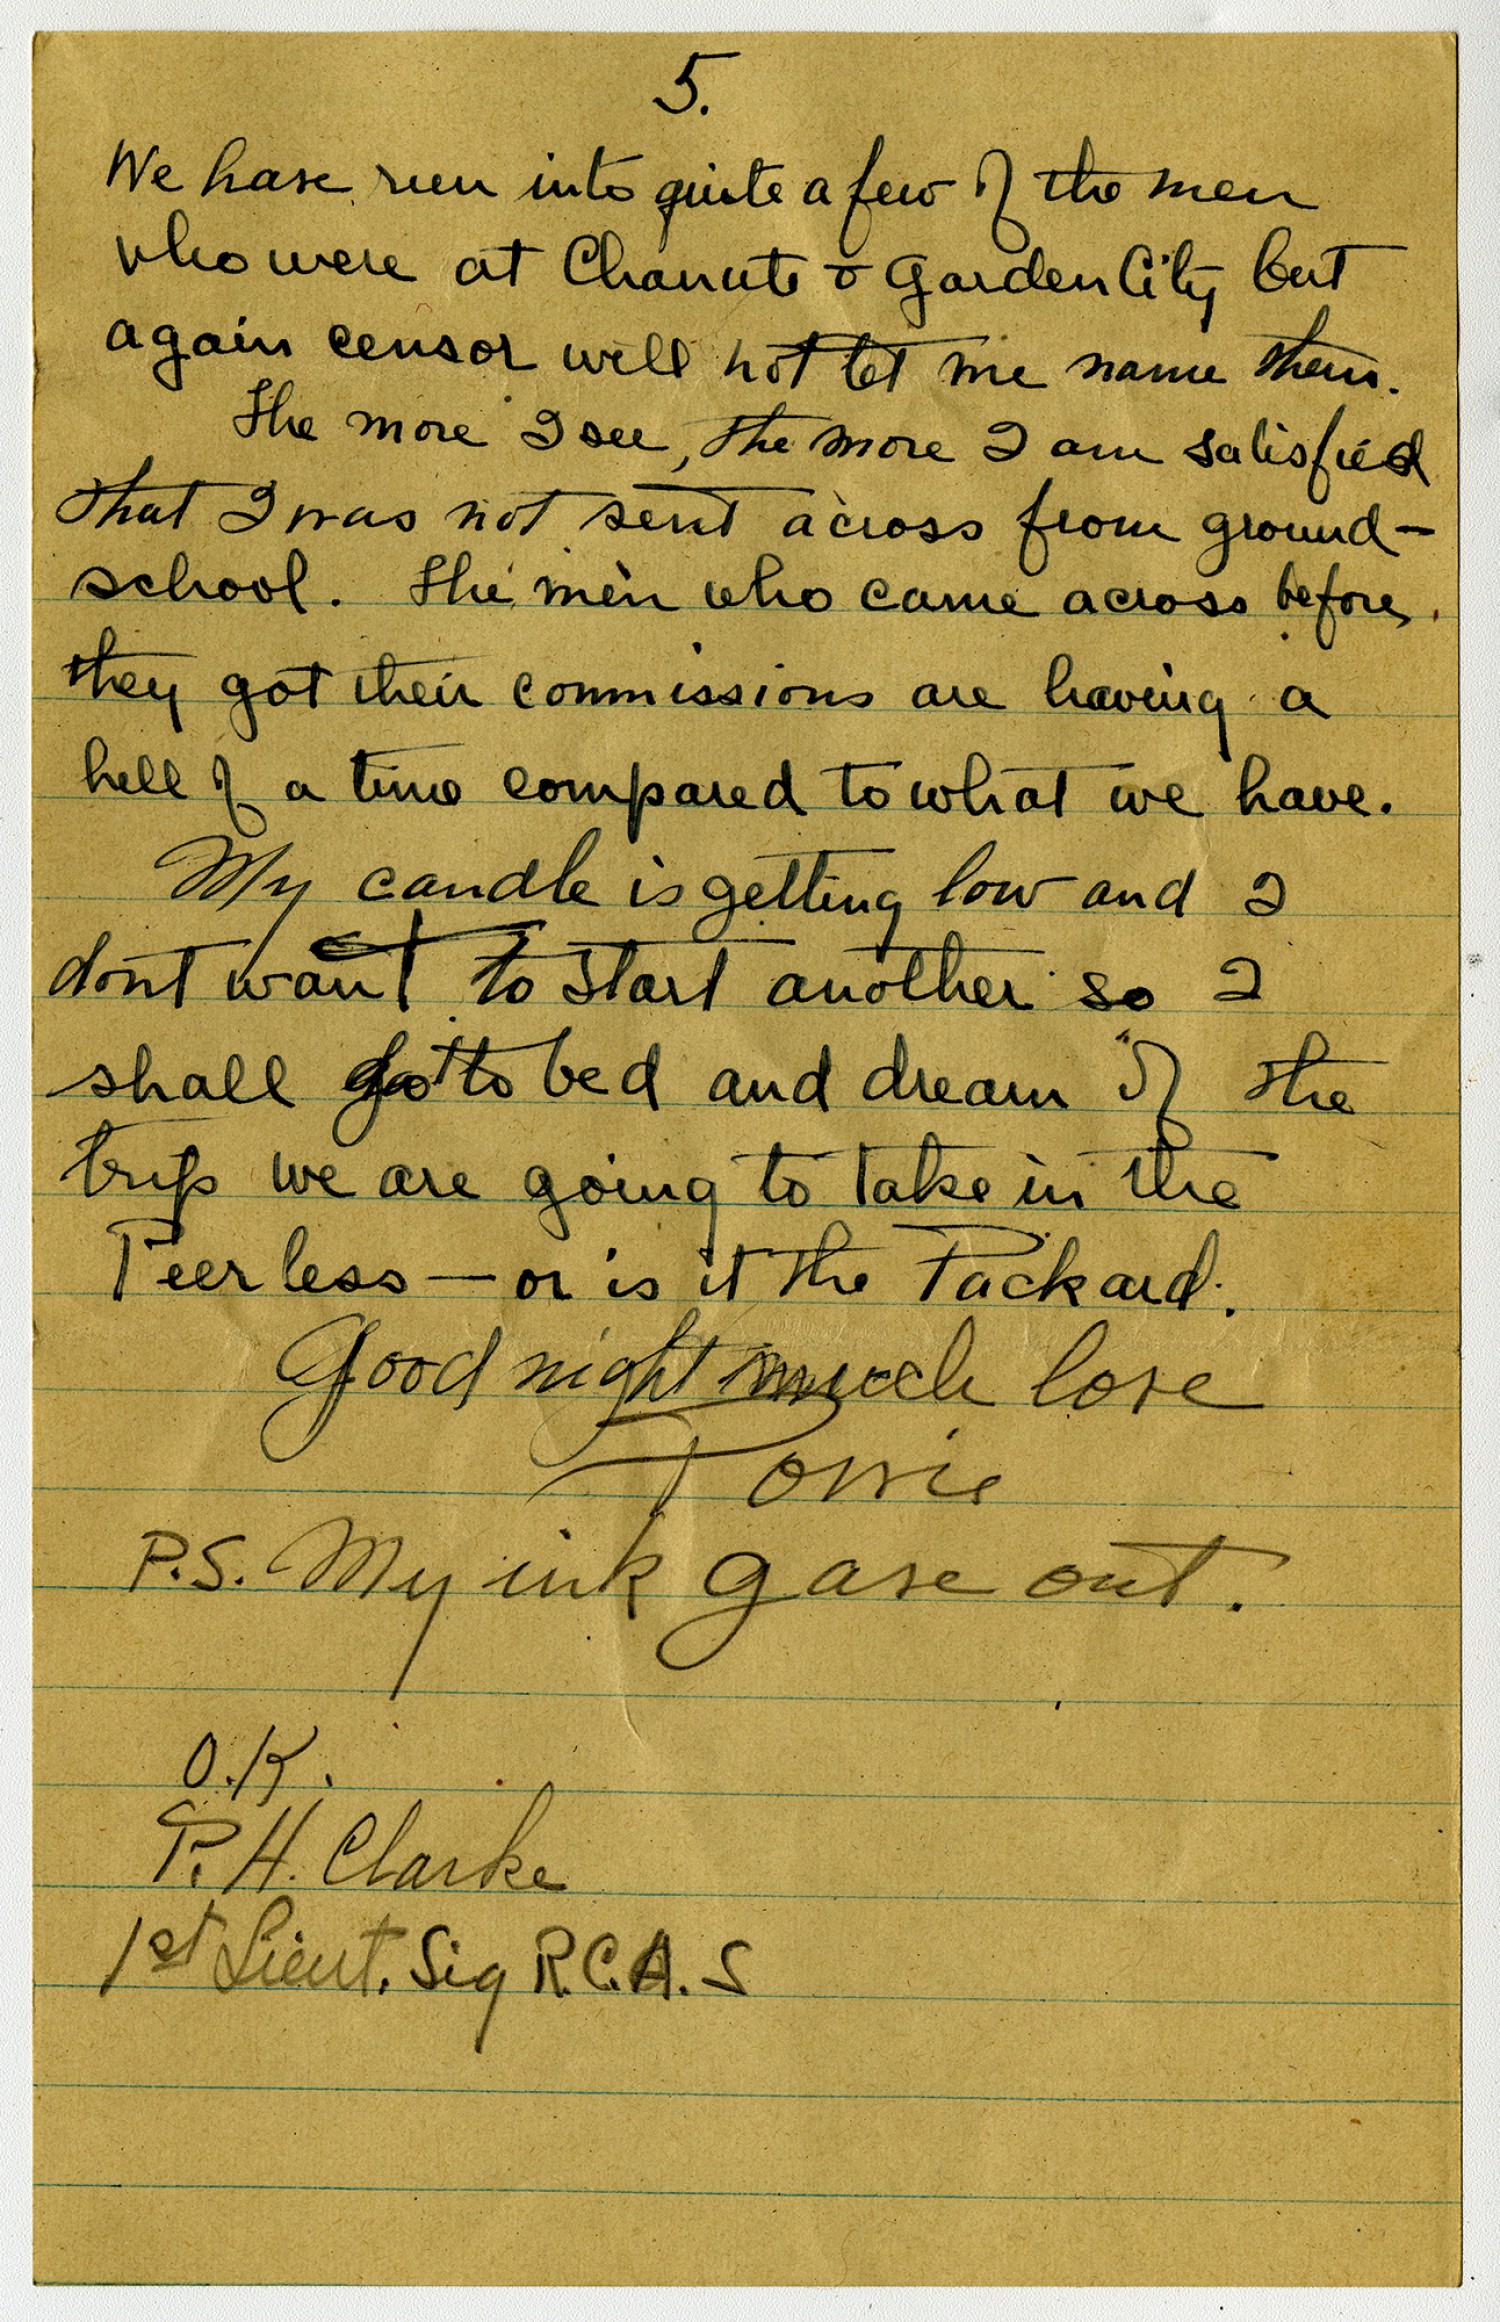 5.
We have run into quite a few of the men
who were at Chanute & Garden City but
again censor will not let me name them.
The more I see, the more I am satisfied
that I was not sent across from ground-
school. The men who came across before
they got their commissions are having a
hell of a time compared to what we have.
My candle is getting low and I
dont want to start another so I
shall go to bed and dream of the
trip we are going to take in the
Peerless — or is it the Packard.
Good night much love
P.S. My ink gave out.
O.K.
P. H. Clarke
1st Lieut. Sig R.C.A.S